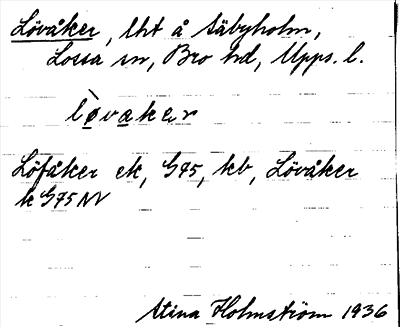 Lövåker, lht å Säbyholm,
Lossa sn, Bro hd, Upps. l.
lø̀vakər
Löfåker ek, G95, kb, Lövåker
k G95 NV
Stina Holmström 1936